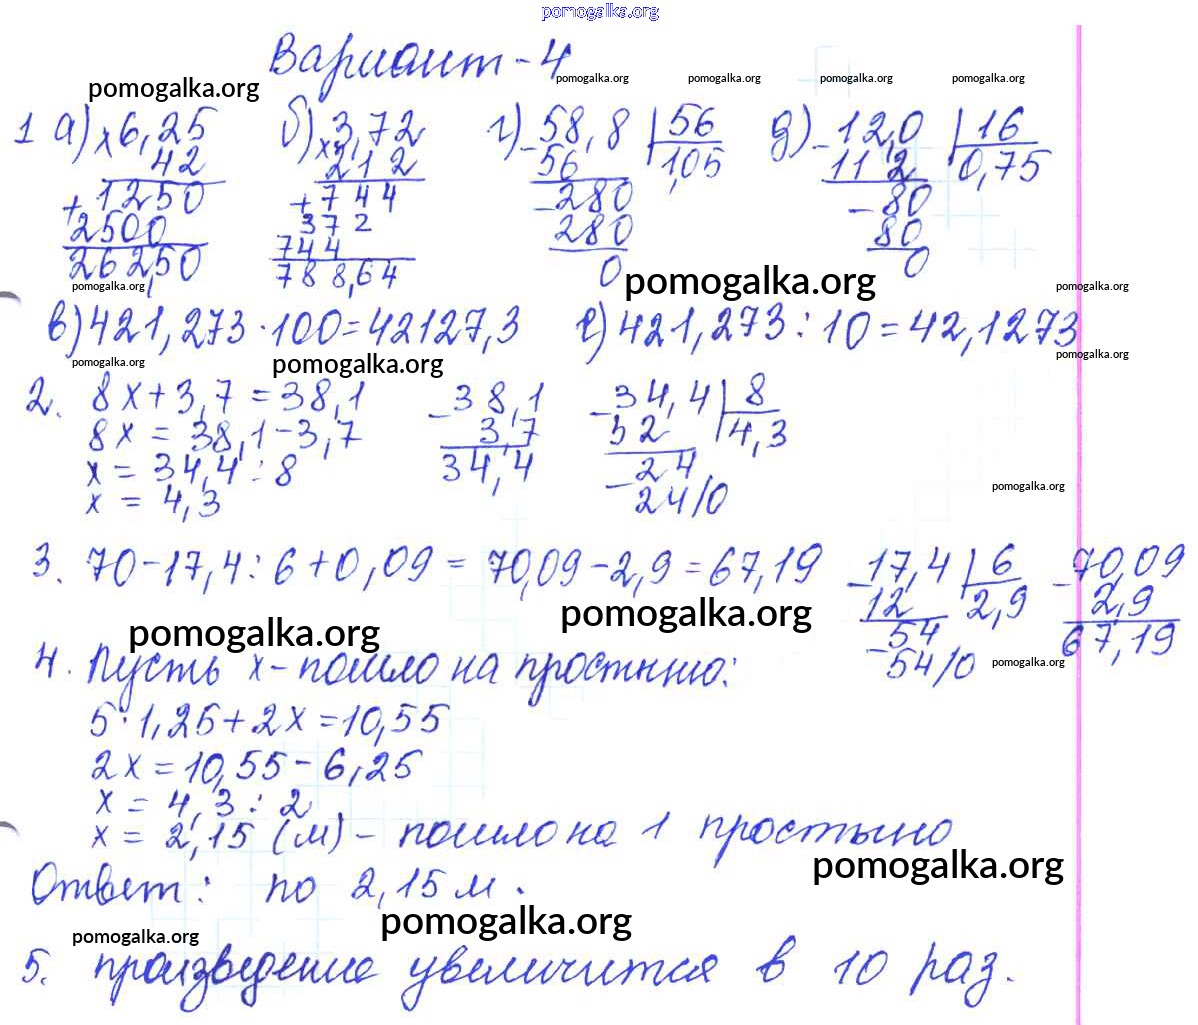 pomogalka.org
Вариант-4
pomogalka.org pomogalka.org pomogalka.org pomogalka.org pomogalka.org
1 а) × 6,25 б) × 3,72 г) - 58,8 | 56 д) - 12,0 | 16
42 212 56 1,05 11 2 0,75
+ 1250 + 744 - 280 - 80
2500 372 280 80
26 2,50 744 0 0
788,64
pomogalka.org pomogalka.org pomogalka.org
в) 421,273 · 100 = 42127,3 е) 421,273 : 10 = 42,1273
pomogalka.org pomogalka.org pomogalka.org
2. 8x + 3,7 = 38,1 - 38,1 - 34,4 | 8
8x = 38,1 - 3,7 3,7 32 4,3
x = 34,4 : 8 34,4 - 24
x = 4,3 24/0
pomogalka.org
3. 70 - 17,4 : 6 + 0,09 = 70,09 - 2,9 = 67,19 - 17,4 | 6 - 70,09
12 2,9 2,9
- 54 67,19
54/0
pomogalka.org pomogalka.org pomogalka.org
4. Пусть x - пошло на простыню:
5 · 1,25 + 2x = 10,55
2x = 10,55 - 6,25
x = 4,3 : 2
x = 2,15 (м) - пошло на 1 простыню
pomogalka.org
Ответ: по 2,15 м.
pomogalka.org pomogalka.org
5. произведение увеличится в 10 раз.